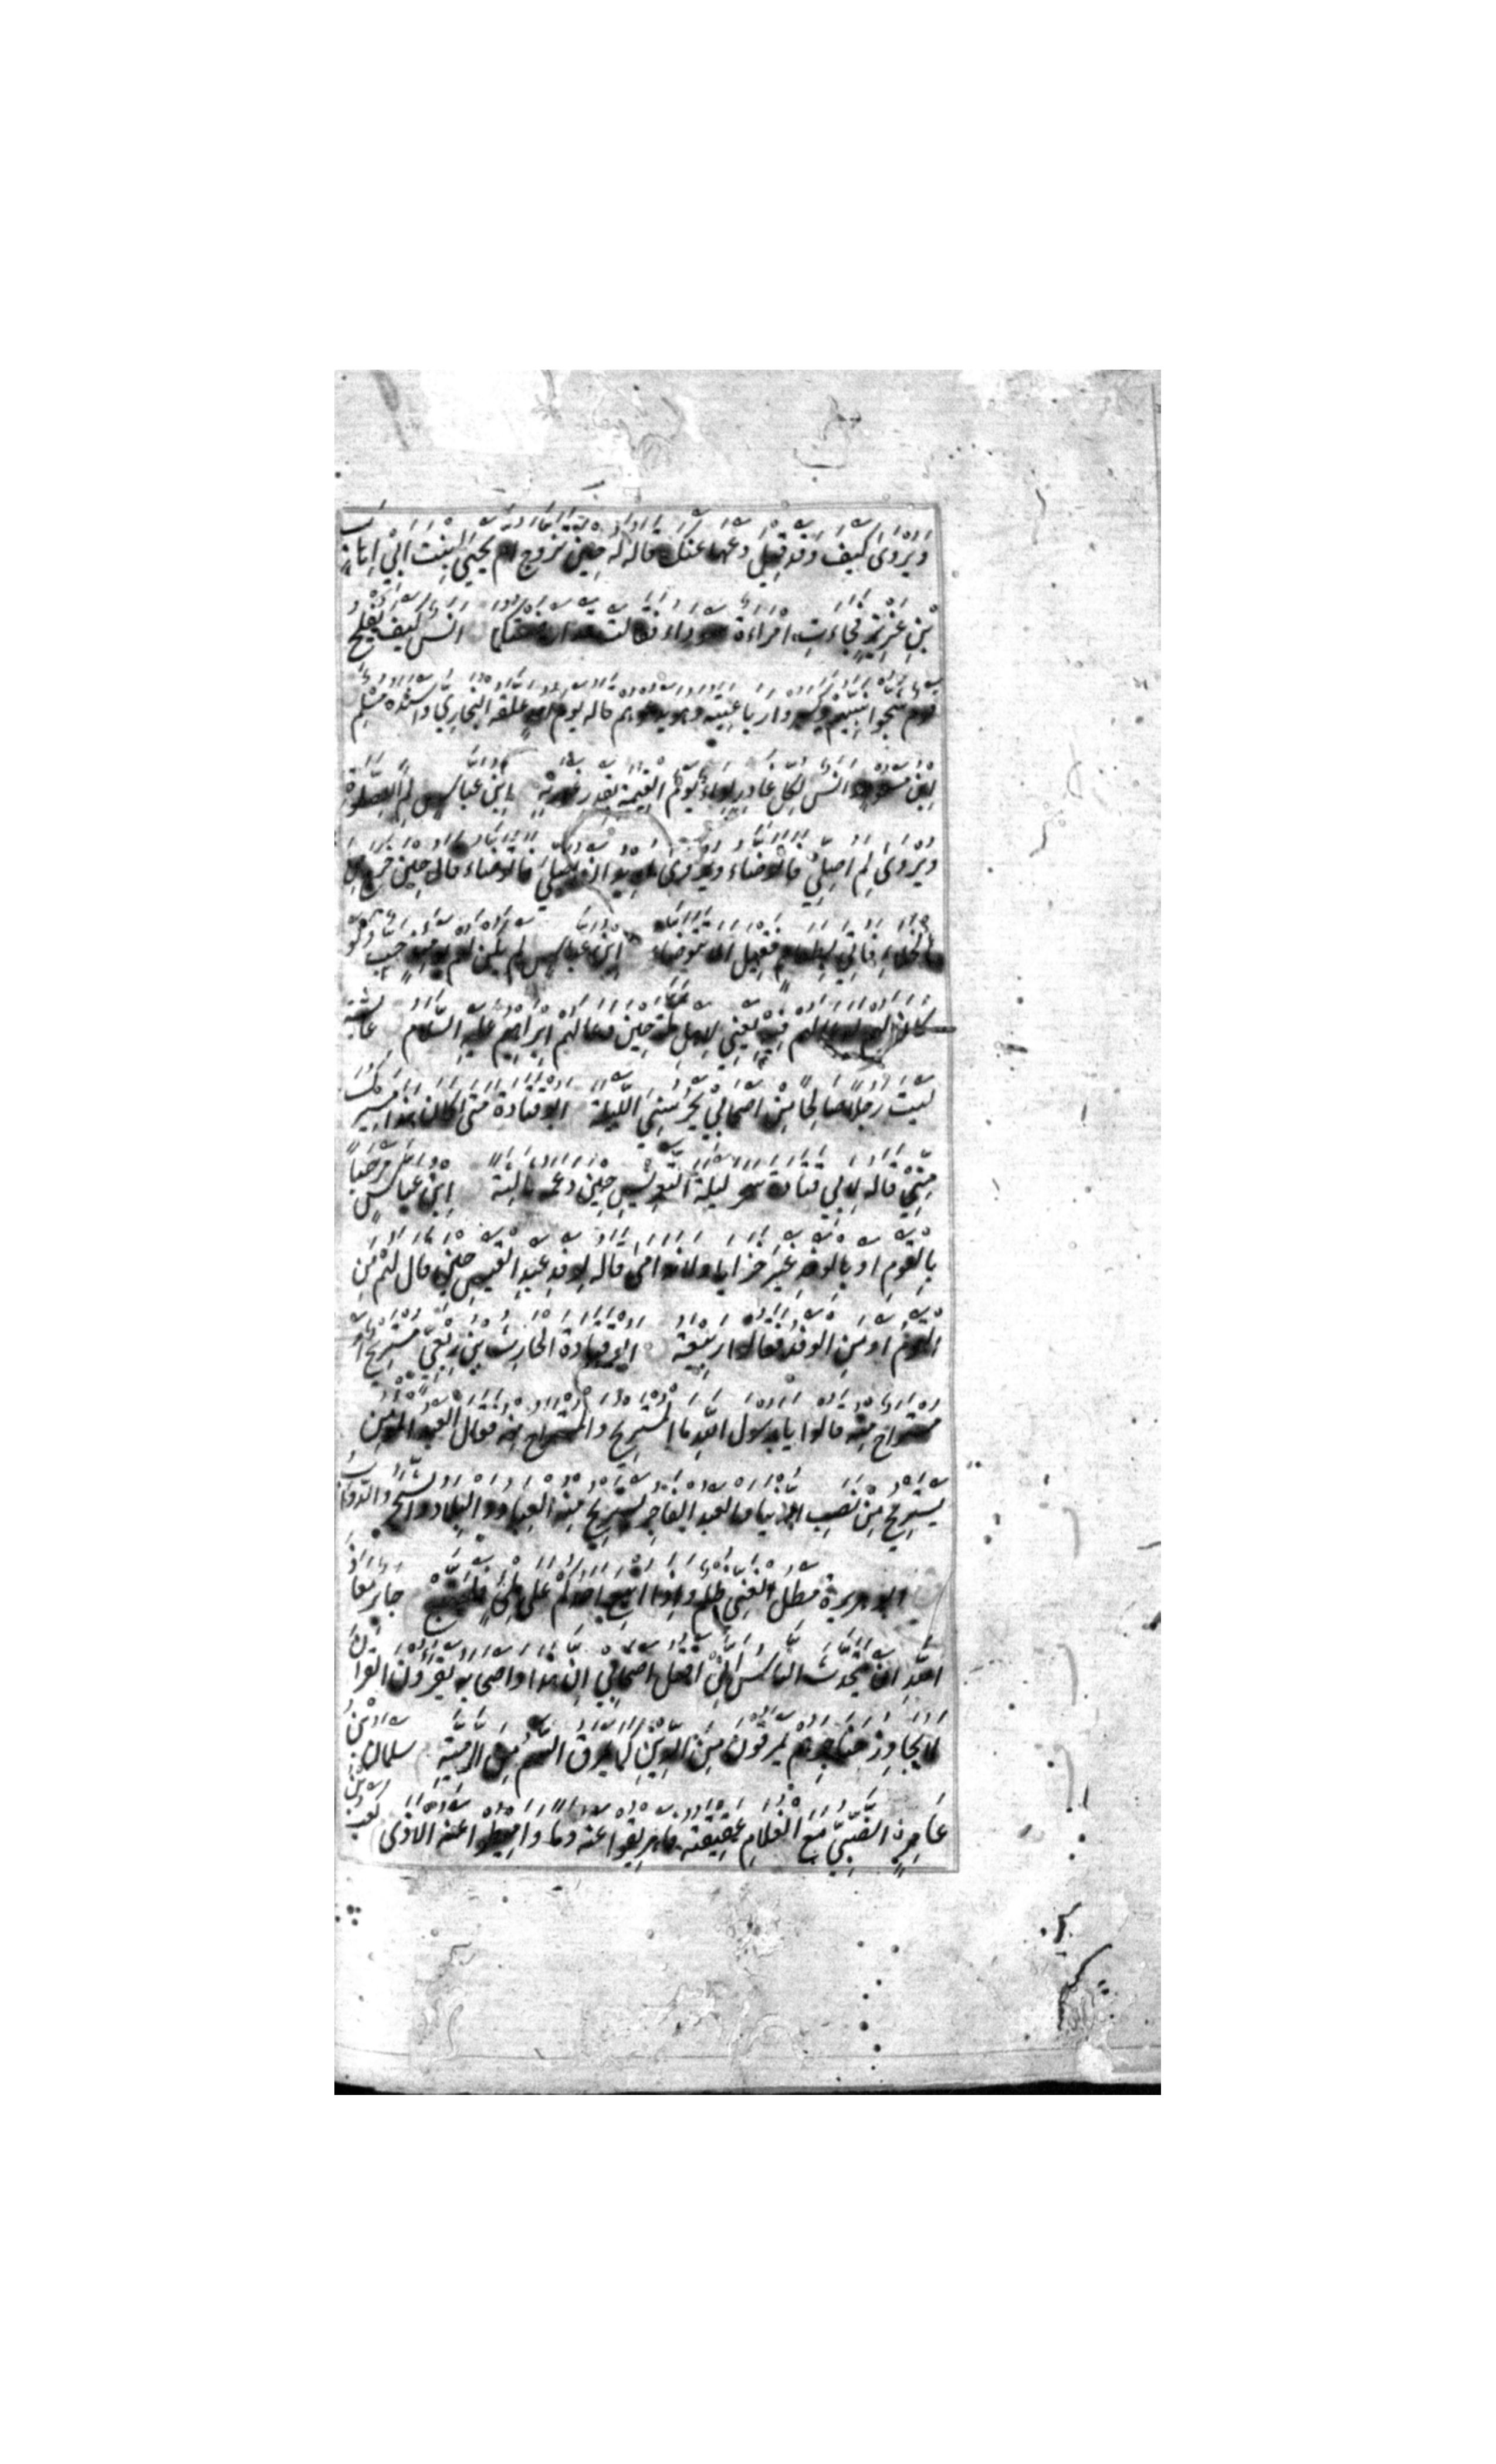 وَيُرْوٰى كَيْفَ وَقَدْ قِيْلَ دَعْهَا عَنْكَ قاله له حِيْنَ تزوج ام يَحْيٰى بِنْتَ اَبِيْ اِهَابِ
بْنِ عَزِيْزٍ فَجَاءَتِ امْرَاءَة سوداء فقالت قد ارضعتكما اَنَسٌ كَيْفَ يُفْلِحُ
قوم شَجُّوا نَبِيَّهُمْ وكسروا رباعيته وهو يدعوهم قاله يوم احد علقه البخاري واسنده مُسْلِم
اِبْنُ مسعود انس لِكُلِّ غَادِرٍ لِوَاءٌ يَوْمَ الْقِيٰمَةِ بِقَدْرِ غَدْرَتِهِ اِبْنُ عباس لِمَ اَلِلصَّلٰوةِ
وَيُرْوٰى لِمَ اُصَلِّيْ فَاَتَوَضَّاءَ ويروى اريد ان اصلي فاتوضاء قاله حِيْنَ خرج مِنَ
الخلاء فَاُتِيَ بِطَعَامٍ فَقِيْلَ الا تتوضاء اِبْنُ عَبَّاسٍ لم يكن لهم يومئذ حَبٌّ وَلَوْ
كان لهم دعا لهم فِيْهِ يَعْنِيْ لِاَهْلِ مكة حِيْنَ دعا لَهُمْ اِبْرَاهِيْمُ عليه السلام عَائِشَة
لَيْتَ رَجُلًا صَالِحًا مِنْ اَصْحَابِيْ يَحْرُسُنِيْ اللَّيْلَةَ ابو قتادة مَتٰى كان هذا مَسِيْرَكَ
مِنِّيْ قاله لِاَبِيْ قَتَادة سحر ليلة التَّعْرِيْسِ حِيْنَ دعمه ثالِثَة اِبْنُ عَبَّاسٍ مَرْحَبًا
بِالْقَوْمِ اَو بالوفد غَيْرَ خزايا ولا ندامى قاله لِوَفْدِ عَبْدِ الْقَيْسِ حِيْنَ قال لَهُمْ مَنِ
الْقَوْمُ اَو مَنِ الوفد فقالوا رَبِيْعَة ابو قتادة الحارث بْنُ رِبْعِيٍّ مُسْتَرِيْحٌ اَوْ
مستراح مِنْهُ قالوا يا رسول الله ما المُسْتَرِيْحُ والمستراح منه فقال العبد المؤمن
يَسْتَرِيْحُ مِنْ نَصَبِ الدنيا والعبد الفاجر يَسْتَرِيْحُ مِنْهُ العِبَادُ والبِلَادُ والشَّجَرُ والدَّوَابُّ
ابو هريرة مَطْلُ الغَنِيِّ ظلم واذا اتبع احدكم على مَلِيْءٍ فليتبع جَابِر مَعَاذَ
اللهِ اَنْ يَتَحَدَّثَ النَّاسُ اَنِّيْ اقتل اَصْحَابِيْ اِنَّ هٰذا واصحابه يقرؤن القرآن
لا يُجَاوِزُ حَنَاجِرَهُمْ يَمْرُقُوْنَ مِنَ الدِّيْنِ كما يمرق السهم مِنَ الرَّمِيَّةِ سلمان بْنُ
عَامِرٍ الضَّبِّيُّ مَعَ الْغُلَامِ عَقِيْقَتُهُ فاهريقوا عنه دما واميطوا عنه الاذى كعب بْنُ